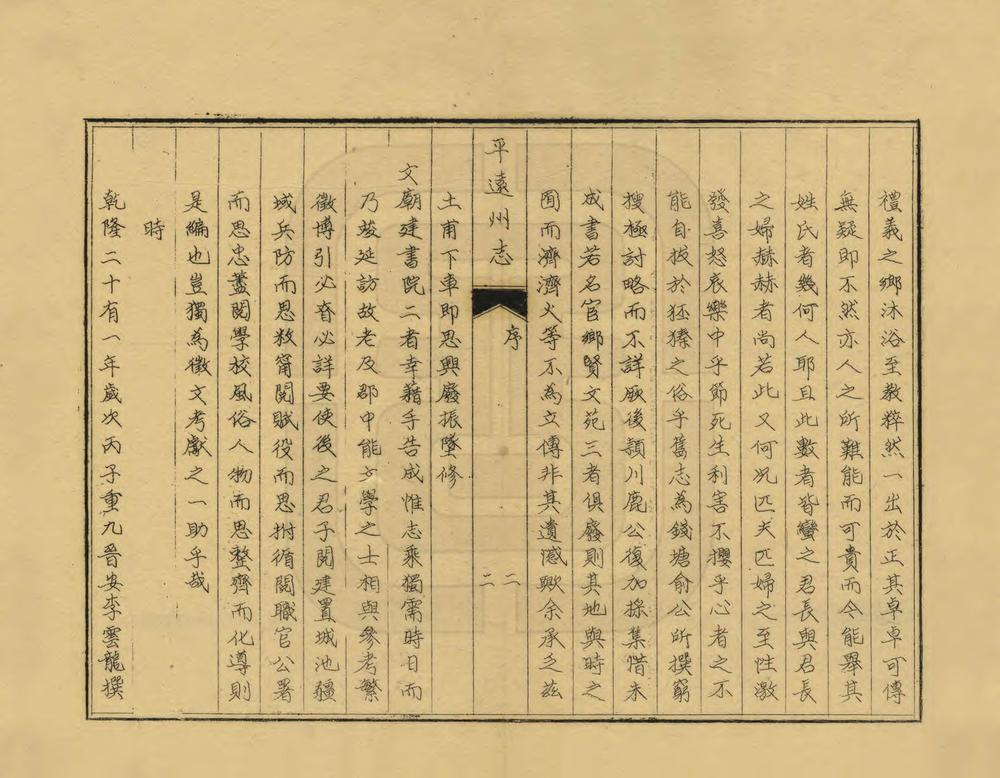 禮義之鄉沐浴至教粹然一出於正其卓卓可傳
無疑即不然亦人之所難能而可貴而今能舉其
姓氏者幾何人耶且此數者皆蠻之君長與君長
之婦赫赫者尚若此又何況匹夫匹婦之至性激
發喜怒哀樂中乎節死生利害不攖乎心者之不
能自拔於狉獉之俗乎舊志為錢塘俞公所撰窮
搜極討略而不詳厥後潁川鹿公復加採集惜未
成書若名宦鄉賢文苑三者俱廢則其地與時之
囿而濟濟火等不為立傳非其遺憾歟余承乏茲
平遠州志
序
二二
土甫下車即思興廢振墜修
文廟建書院二者幸藉手告成惟志乘獨需時日而
乃踆延訪故老及郡中能文學之士相與參考繁
徵博引必眘必詳要使後之君子閱建置城池疆
域兵防而思敉甯閱賦役而思拊循閱職官公署
而思忠藎閱學校風俗人物而思整齊而化導則
是編也豈獨為徵文考獻之一助乎哉
時
乾隆二十有一年歲次丙子重九晉安李雲龍撰